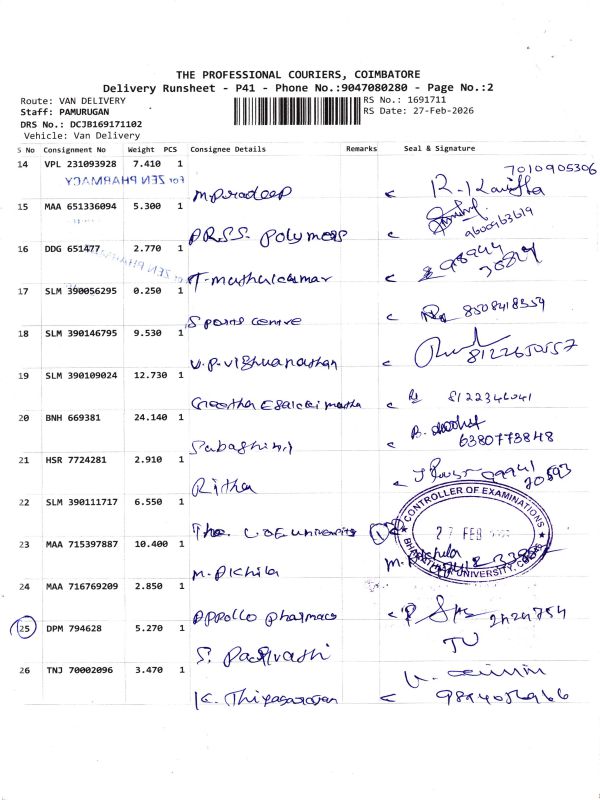 THE PROFESSIONAL COURIERS, COIMBATORE
Delivery Runsheet - P41 - Phone No.:9047080280 - Page No.:2
Route: VAN DELIVERY
RS No.: 1691711
Staff: PAMURUGAN
RS Date: 27-Feb-2026
DRS No.: DCJB169171102
Vehicle: Van Delivery
S No Consignment No Weight PCS Consignee Details Remarks Seal & Signature
14 VPL 231093928 7.410 1
For ZEN PHARMACY
M. Pradeep
7010905306
15 MAA 651336094 5.300 1
P.R.S.S. Polymers
9600963619
16 DDG 651477 2.770 1
T. muthukumar
17 SLM 390056295 0.250 1
Sports centre
8508418354
18 SLM 390146795 9.530 1
V.P. Vishwanathan
8122650557
19 SLM 390109024 12.730 1
20 BNH 669381 24.140 1
6380773848
21 HSR 7724281 2.910 1
Ritha
22 SLM 390111717 6.550 1
The. COE university
CONTROLLER OF EXAMINATIONS
27 FEB
23 MAA 715397887 10.400 1
24 MAA 716769209 2.850 1
Appollo pharmacy
25 DPM 794628 5.270 1
S. Parvathi
26 TNJ 70002096 3.470 1
K. Thiyagarajan